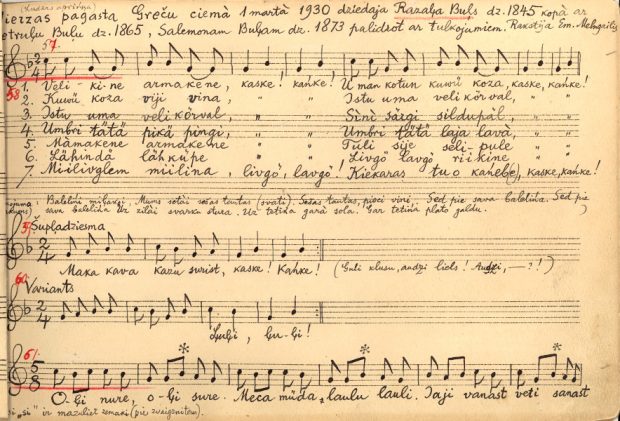 (Ludzas apriņķa)
Pierzas pagasta Greču ciemā 1 martā 1930 dziedāja Razaļa Buļs dz. 1845 kopā ar
Petruļu Buļu dz. 1865, Salemonam Buļam dz. 1873 palīdzot ar tulkojumiem. Rakstīja Em. Melngailis
57.
58
2/4
1. Veli kine armakene, kaske! kaņke! U man kotun kuwu koza, kaske, kaņke!
2. Kuwu koza viji vina, " " Istu uma veli kõrval, " "
3. Istu uma veli kõrval, " " Sini särgi sildupäl, " "
4. Umbri tätä pikä pingi, " " Umbri tätä laja lavä, " "
5. Mämakene armakene " " Tuli sije seli-pule " "
6. Lähindä lähküpe " " Livgõ lavgõ riikine " "
7. Miilivglem miilina, livgõ, lavgõ! Kiekaras tuo kanebe), kaske, kaņke!
Baleliņi mīļākgi, Mums sotāi sešas tautas (svati). Sešas tautas, pieci viņi, Sed pie sava baleliņa. Sed pie
sava baleliņa Uz zilai svarka dura. Uz tētiņa garā sola. Gar tētiņa plato galdu.
59 Šūpļadziesma
2/4
Maka kava kazu surist, kaske! Kaņke! (Guli klusu, audzi liels! Audzi, —?!)
60 Variants
2/4
Ļuļi, ļu-ļi!
61.
5/8
* *
O-ļi nure, o-ļi sure. Meca müda, laulu lauli. Taji vanast veti sanast
"si" ir mazliet zemāki (pie zvaigznītēm).